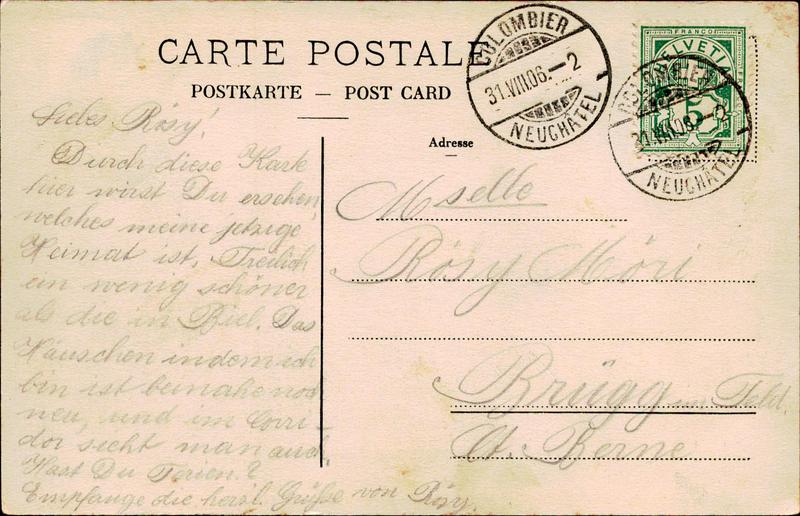 CARTE POSTALE
POSTKARTE — POST CARD
Adresse
COLOMBIER
31.VIII.06.–2
NEUCHÂTEL
FRANCO
HELVETIA
5
COLOMBIER
31.VIII.06.–2
NEUCHÂTEL
Liebes Rösy!
Durch diese Karte
hier wirst Du ersehen,
welches meine jetzige
Heimat ist, Freilich
ein wenig schöner
als die in Biel. Das
Häuschen in dem ich
bin ist beinahe noch
neu, und im Corri-
dor sieht man auch.
Hast Du Ferien?
Empfange die herzl. Grüße von Rösy.
Mselle
Rösy Möri
Brügg im Feld.
Ct. Berne